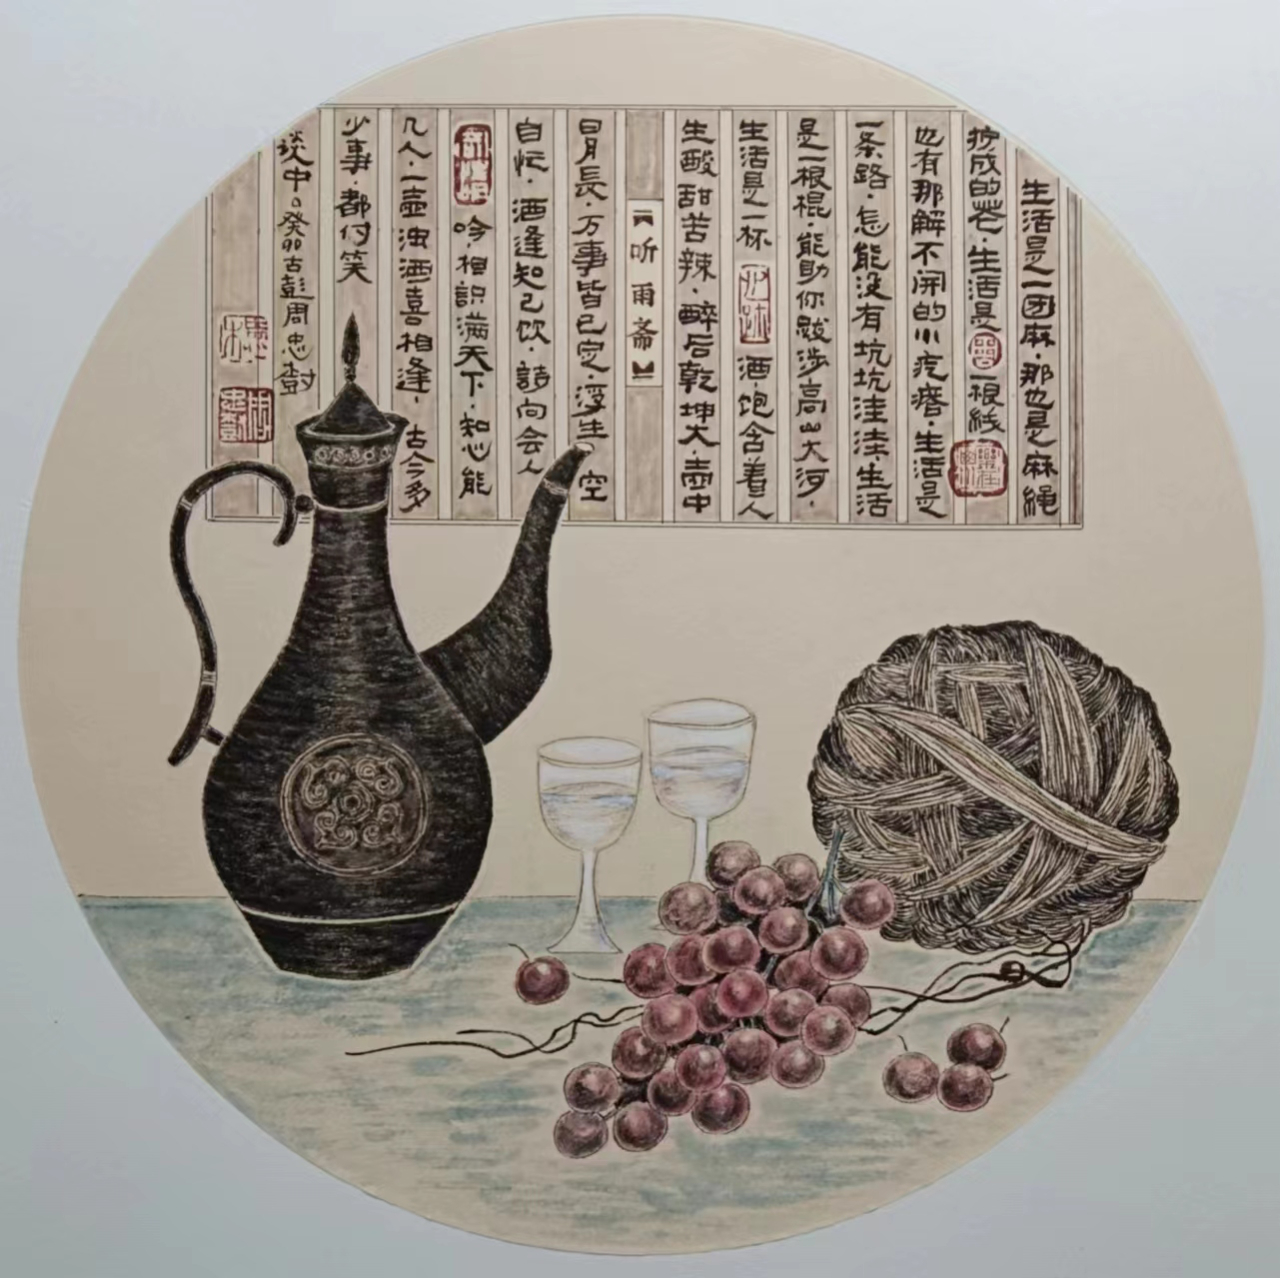 生活是一团麻·那也是麻绳
拧成的花·生活是一根线
也有那解不开的小疙瘩·生活是
一条路·怎能没有坑坑洼洼·生活
是一根棍·能助你跋涉高山大河·
生活是一杯酒·饱含着人
生酸甜苦辣·醉后乾坤大·壶中
【听雨斋】
日月長·万事皆已定·浮生空
自忙·酒逢知己饮·詩向会人
吟·相識满天下·知心能
几人·一壶浊酒喜相逢·古今多
少事·都付笑
谈中。癸卯古彭周忠尌